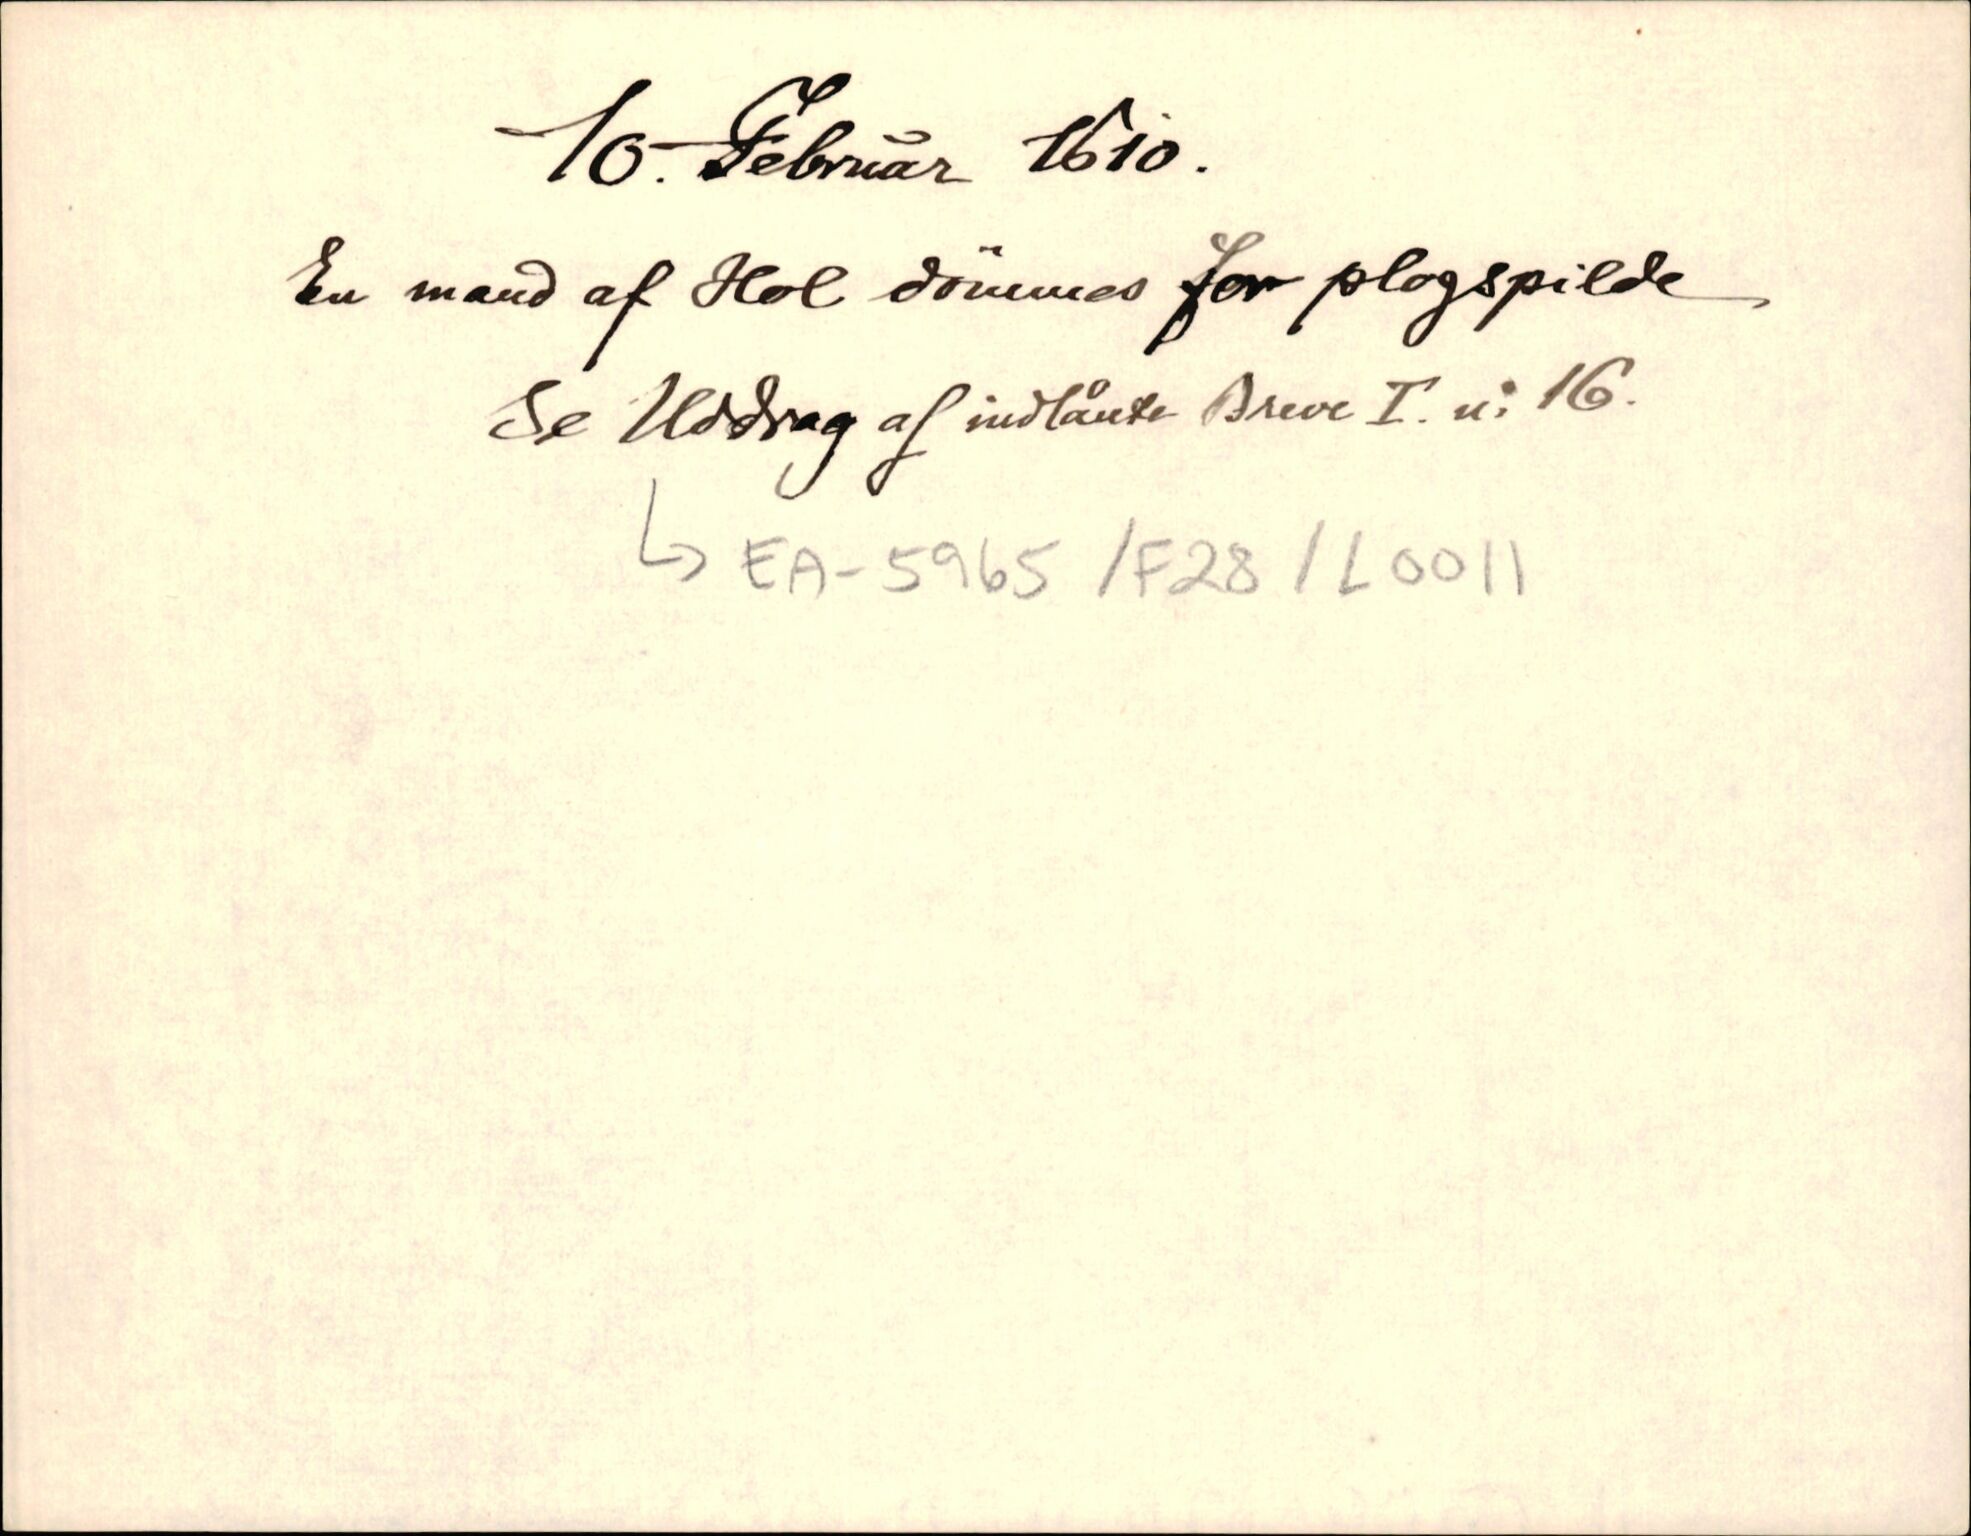 10. Februar 1610.
En mand af Hol dömmes for plogspilde
Se Uddrag af indlånte Breve I. n: 16.
↳ EA-5965 /F28 / L0011